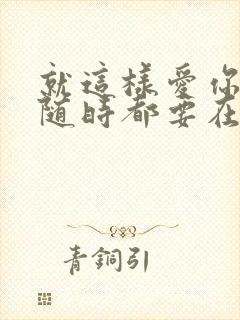 就這樣愛你
隨時都要在
青銅引